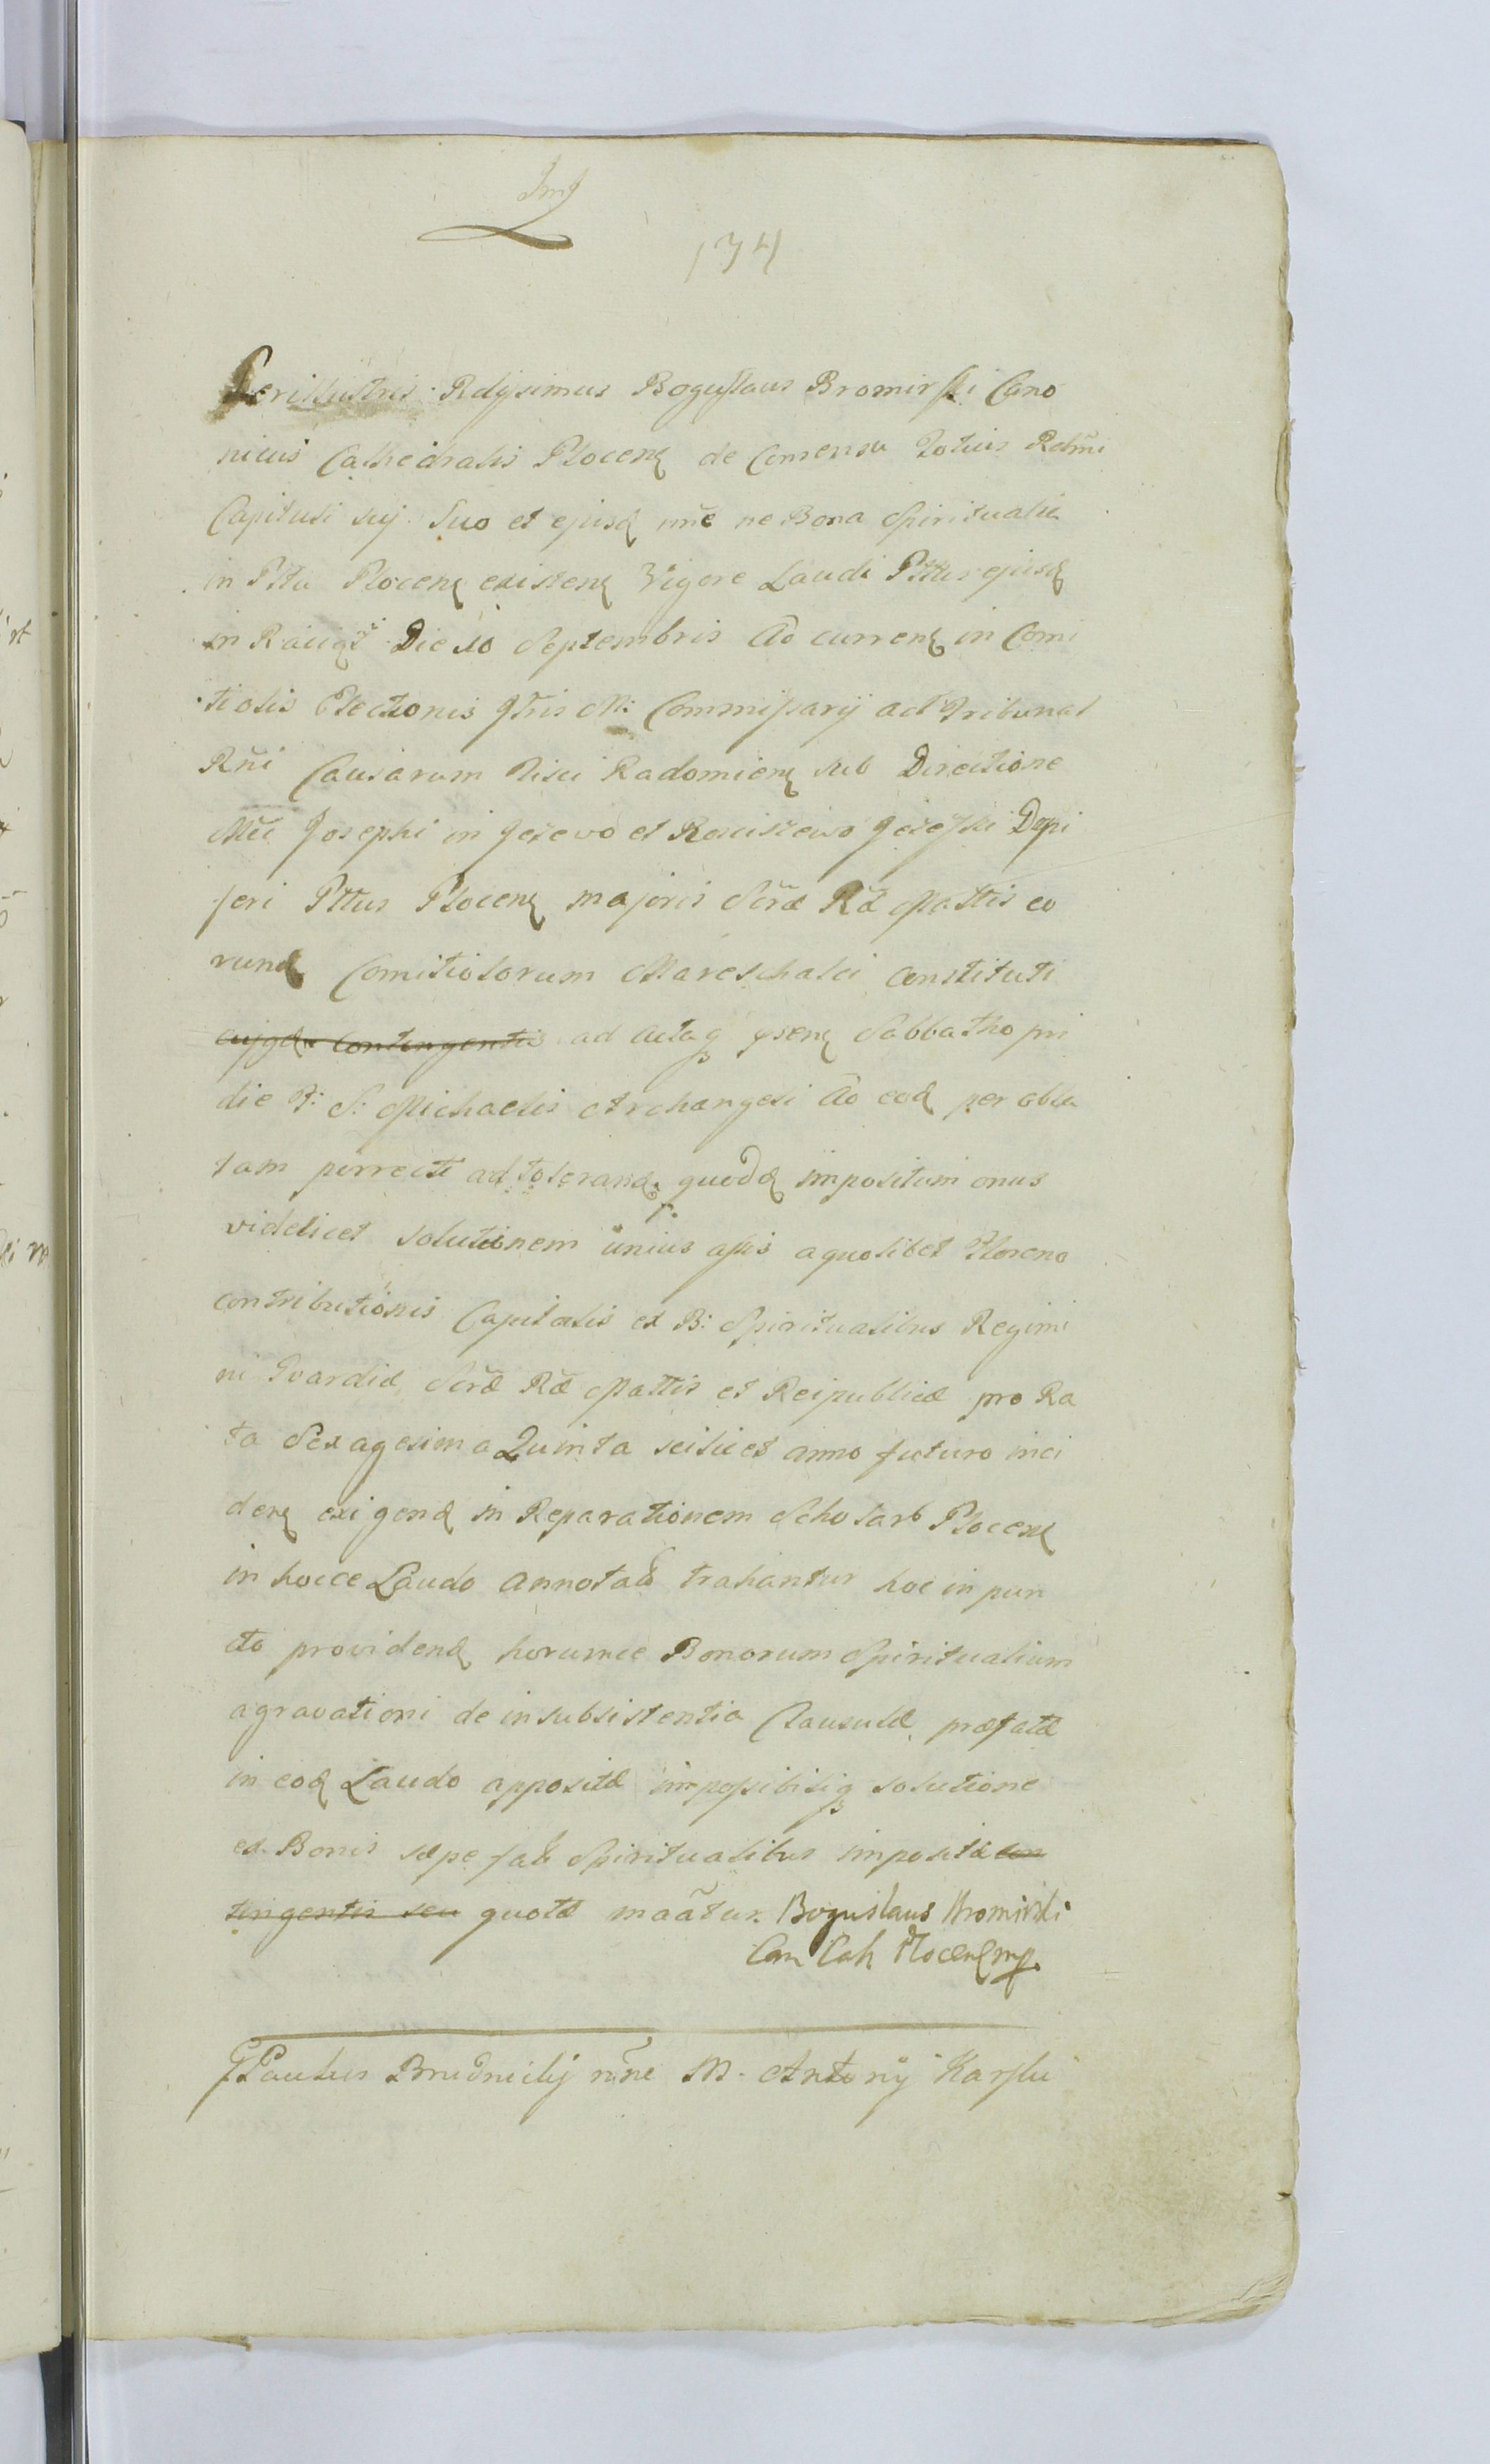 134
Perillustris Rdissimus Boguslaus Bromirski Cano
nicus Cathedralis Plocen de Consensu Totius Rdmi
Capituli sui Suo et ejusd nne ne Bona Spiritualia
in Pttu Plocen existen Vigore Laudi Pttus ejusd
in Raciąż Die 10 Septembris Ao curren in Comi
tiolis Electionis Gttris M: Commissarij ad Tribunal
Rni Causarum Fisci Radomien sub Directione
Mci Josephi in Jeżewo et Rościszewo Jeżewski Dapi
feri Pttus Plocen majoris Sræ Ræ Mattis eo
rund Comitiolorum Mareschalci Constituti
cujqdu contingentis ad Actaq psen Sabbatho pri
die F: S: Michaelis Archangeli Ao eod per obla
tam porrecti ad tolerand quodd impositum onus
videlicet solutionem unius assis a quolibet Floreno
contributionis Capitalis ex B: Spiritualibus Regimi
ni Gvardiæ Sræ Ræ Mattis et Reipublicæ pro Ra
ta Sexagesima Quinta scilicet anno futuro inci
den exigend in Reparationem Scholarb Plocen
in hocce Laudo annotatb trahantur hoc in pun
cto providend horumce Bonorum Spiritualium
agravationi de insubsistentia Clausulæ præfatæ
in eod Laudo appositæ impossibiliq solutione
ex Bonis sæpe fatb Spiritualibus impositæ con
tingentis seu quotæ maātur. Boguslaus Bromirski
Can Cath Plocen mp
G Paulus Brudnicki nne M. Antonij Karski